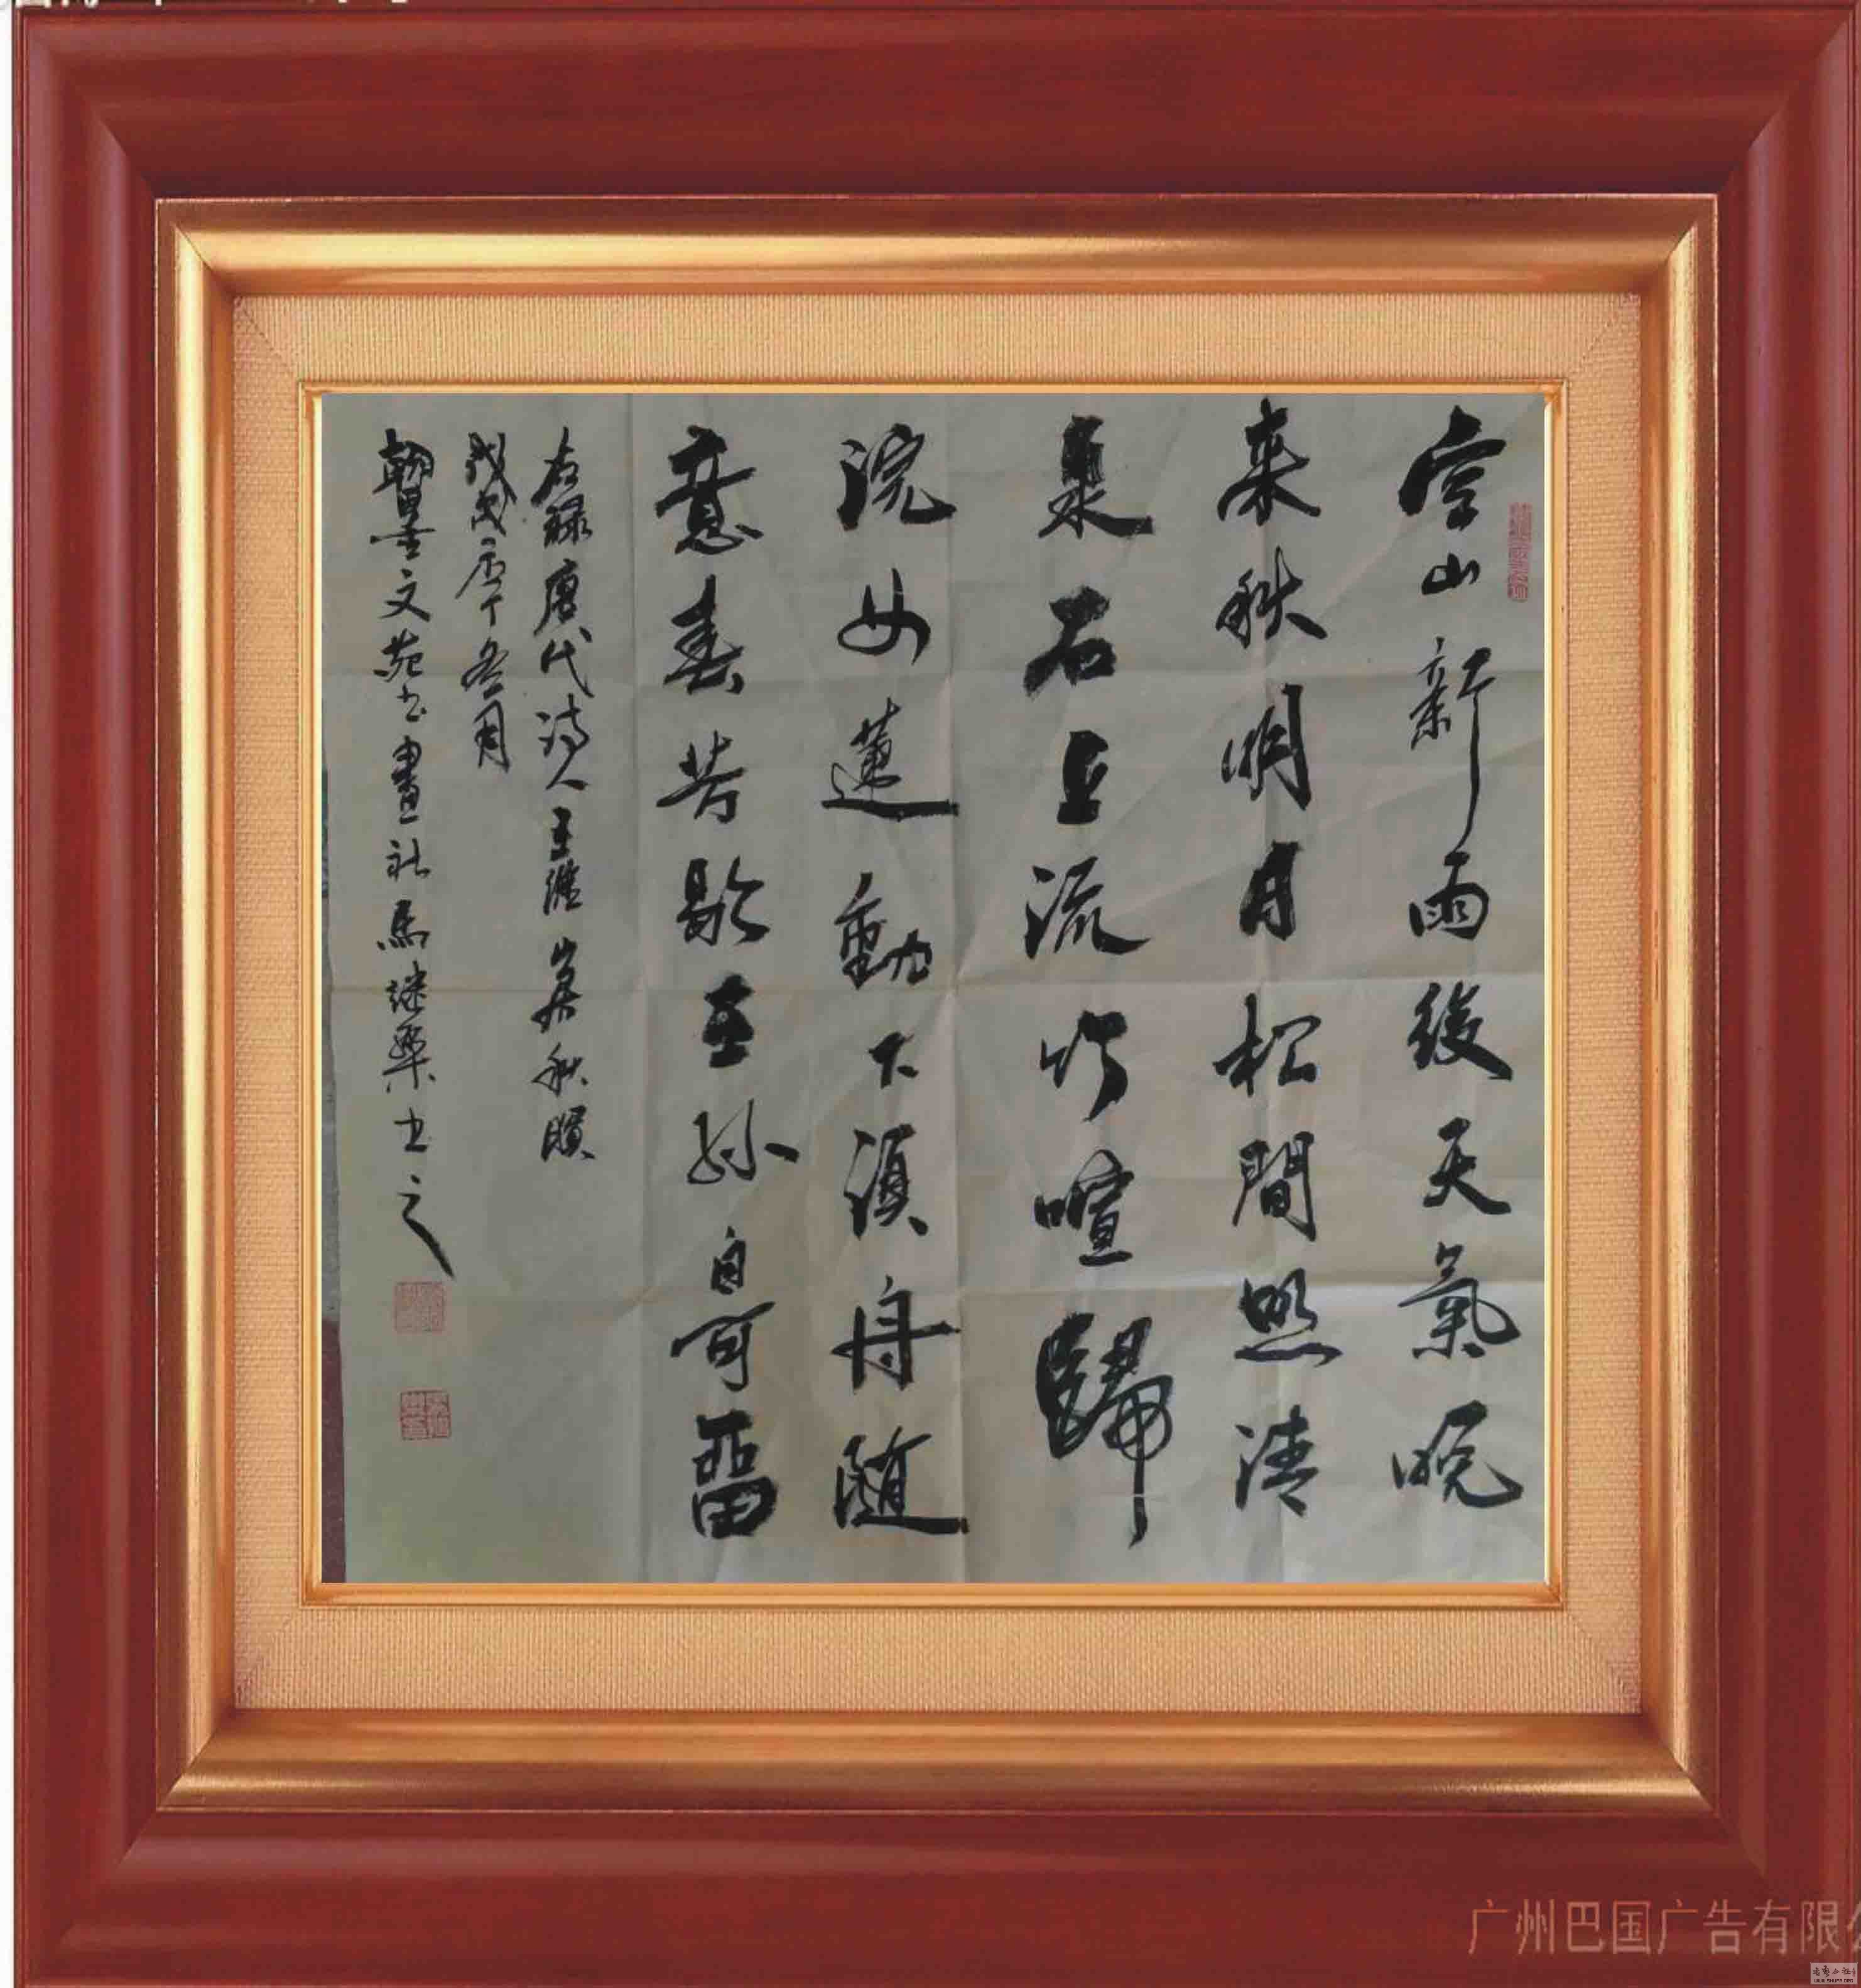 空山新雨後天氣晚
来秋明月松間照清
泉石上流竹喧歸
浣女蓮動下漁舟随
意春芳歇王孫自可留
右録唐代詩人王維山居秋暝
戊戌年冬月
翰墨文苑书畫社馬继樂书之
广州巴国广告有限